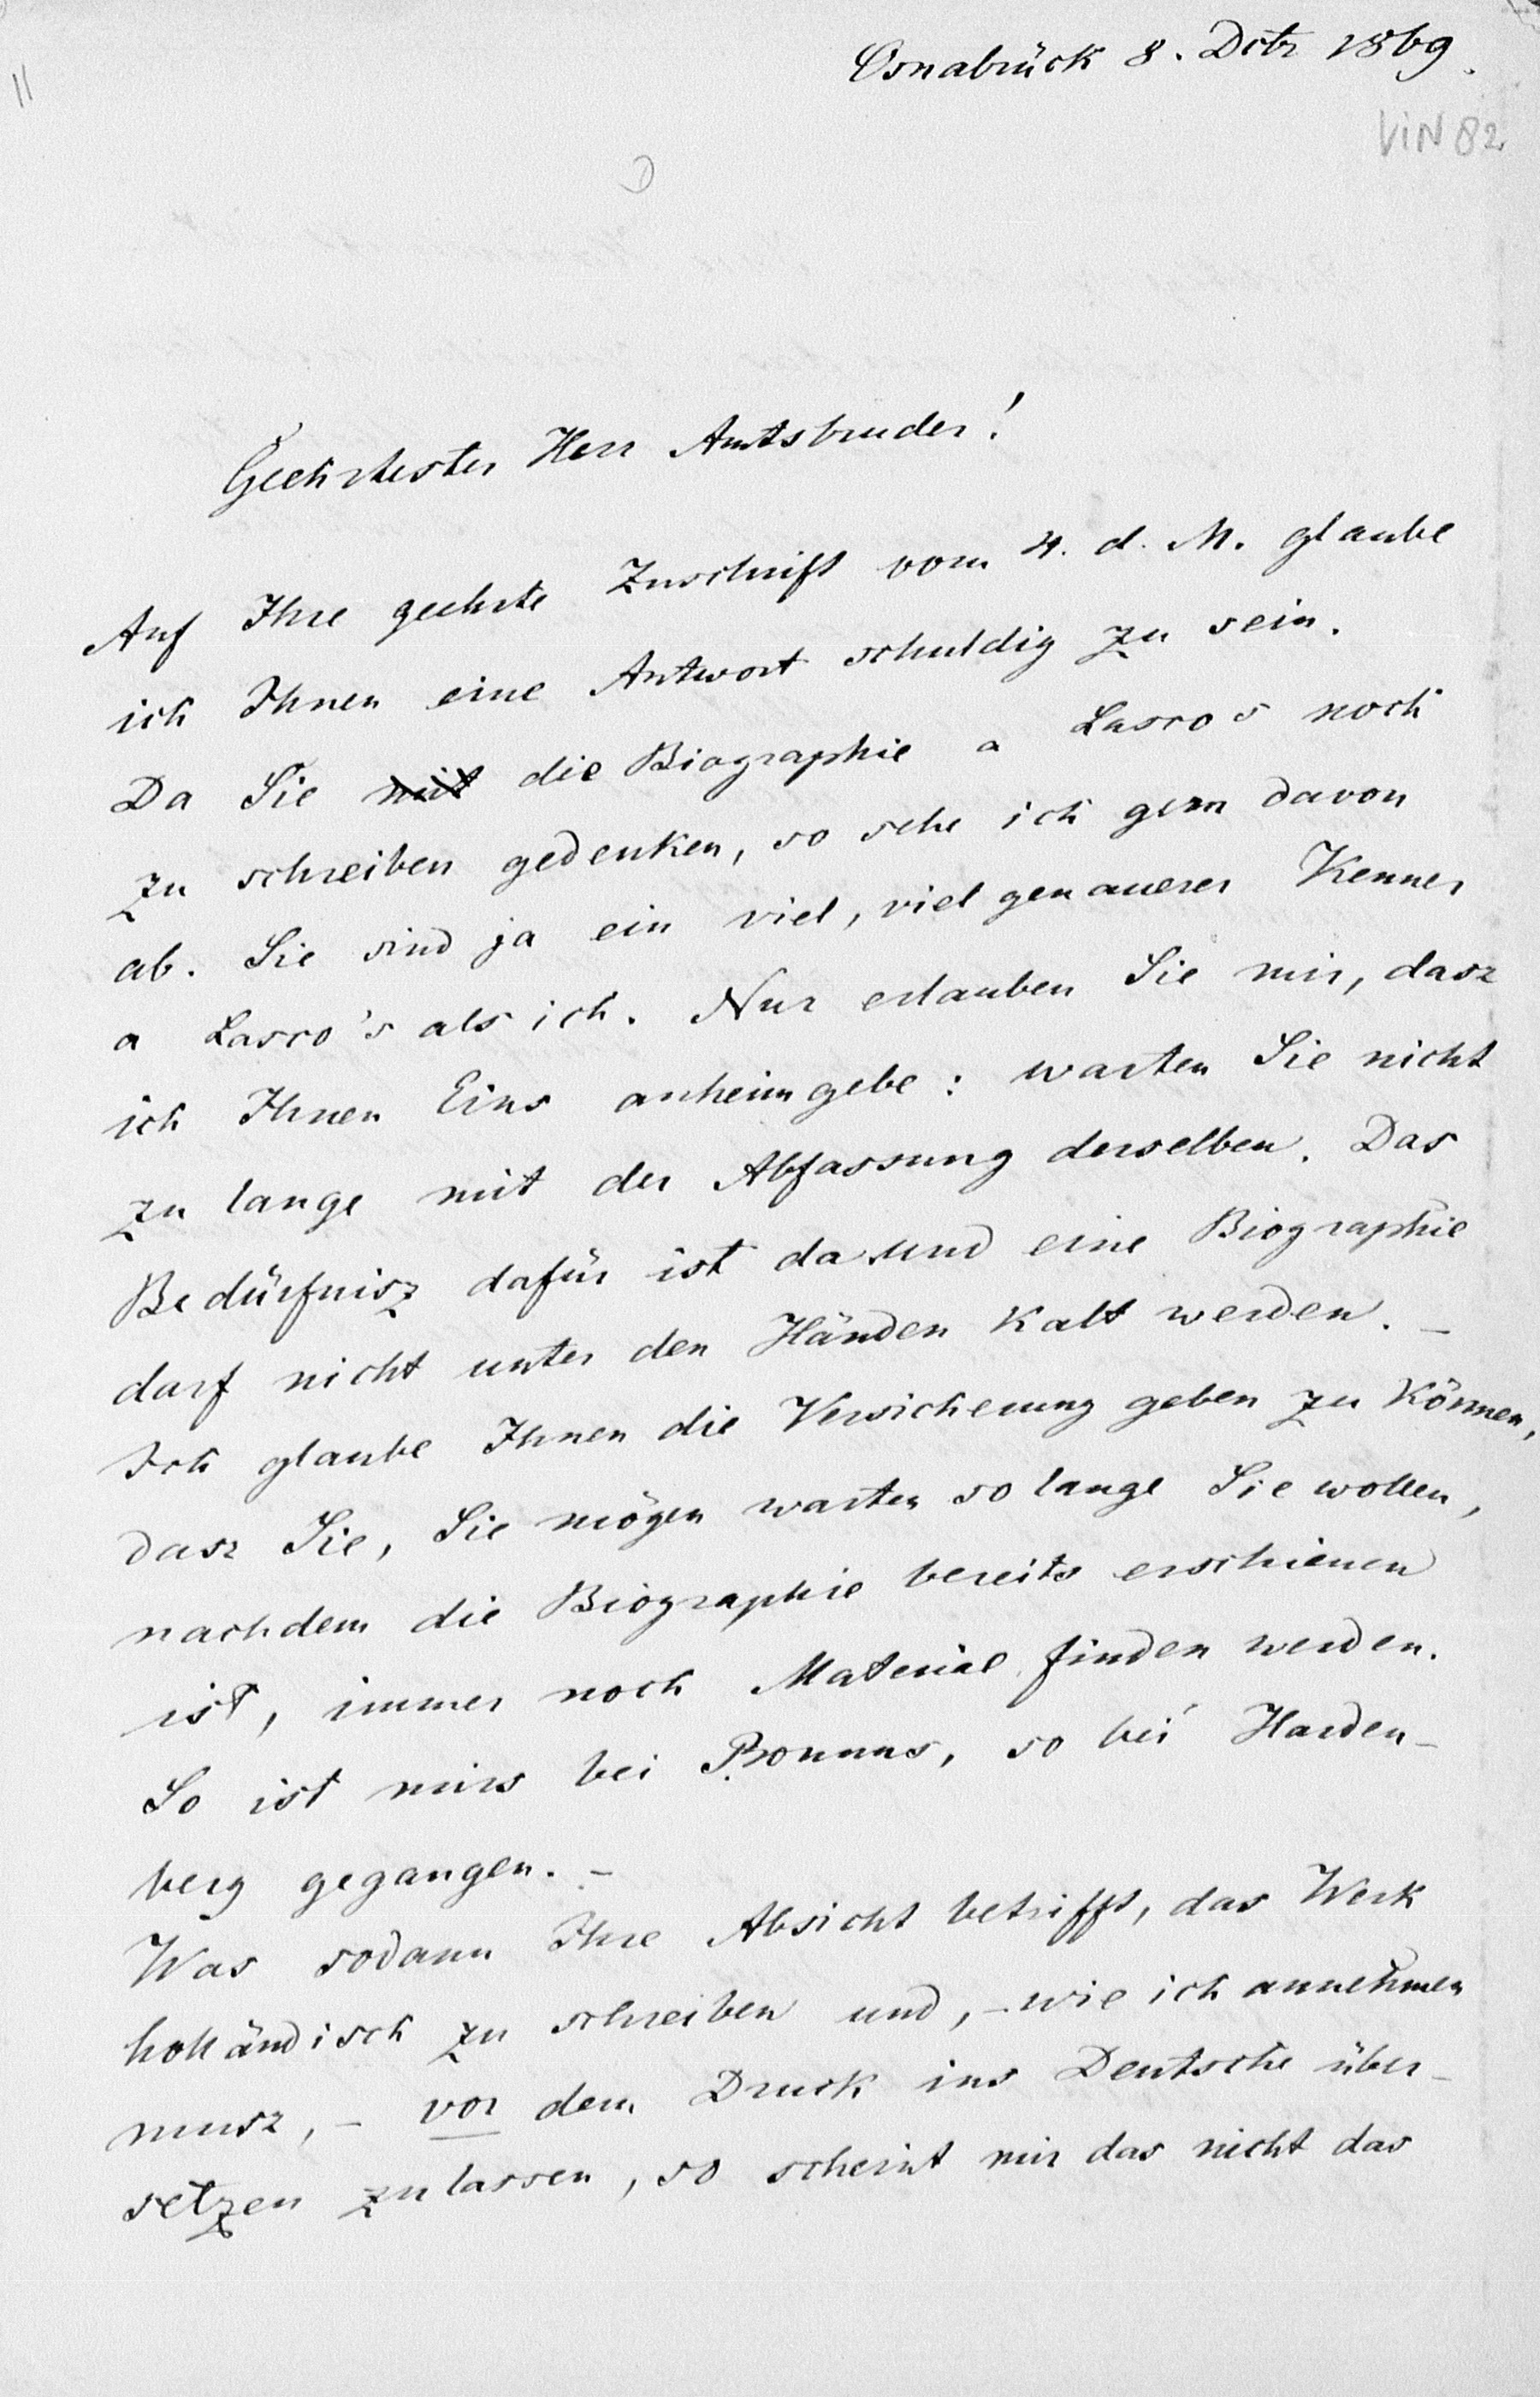 Osnabrück 8. Dcbr 1869.
11
VIN 82
Geehrtester Herr Amtsbruder!
Auf Ihre geehrte Zuschrift vom 4. d. M. glaube
ich Ihnen eine Antwort schuldig zu sein.
Da Sie mit die Biographie a Lasco's noch
zu schreiben gedenken, so sehe ich gern davon
ab. Sie sind ja ein viel, viel genauerer Kenner
a Lasco's als ich. Nur erlauben Sie mir, dasz
ich Ihnen Eins anheim gebe: warten Sie nicht
zu lange mit der Abfassung derselben. Das
Bedürfnisz dafür ist da und eine Biographie
darf nicht unter den Händen kalt werden. –
Ich glaube Ihnen die Versicherung geben zu können,
dasz Sie, Sie mögen warten so lange Sie wollen,
nachdem die Biographie bereits erschienen
ist, immer noch Material finden werden.
So ist mirs bei Bonnus, so bei Harden-
berg gegangen. –
Was sodann Ihre Absicht betrifft, das Werk
holländisch zu schreiben und, – wie ich annehmen
musz, – vor dem Druck ins Deutsche über-
setzen zu lassen, so scheint mir das nicht das